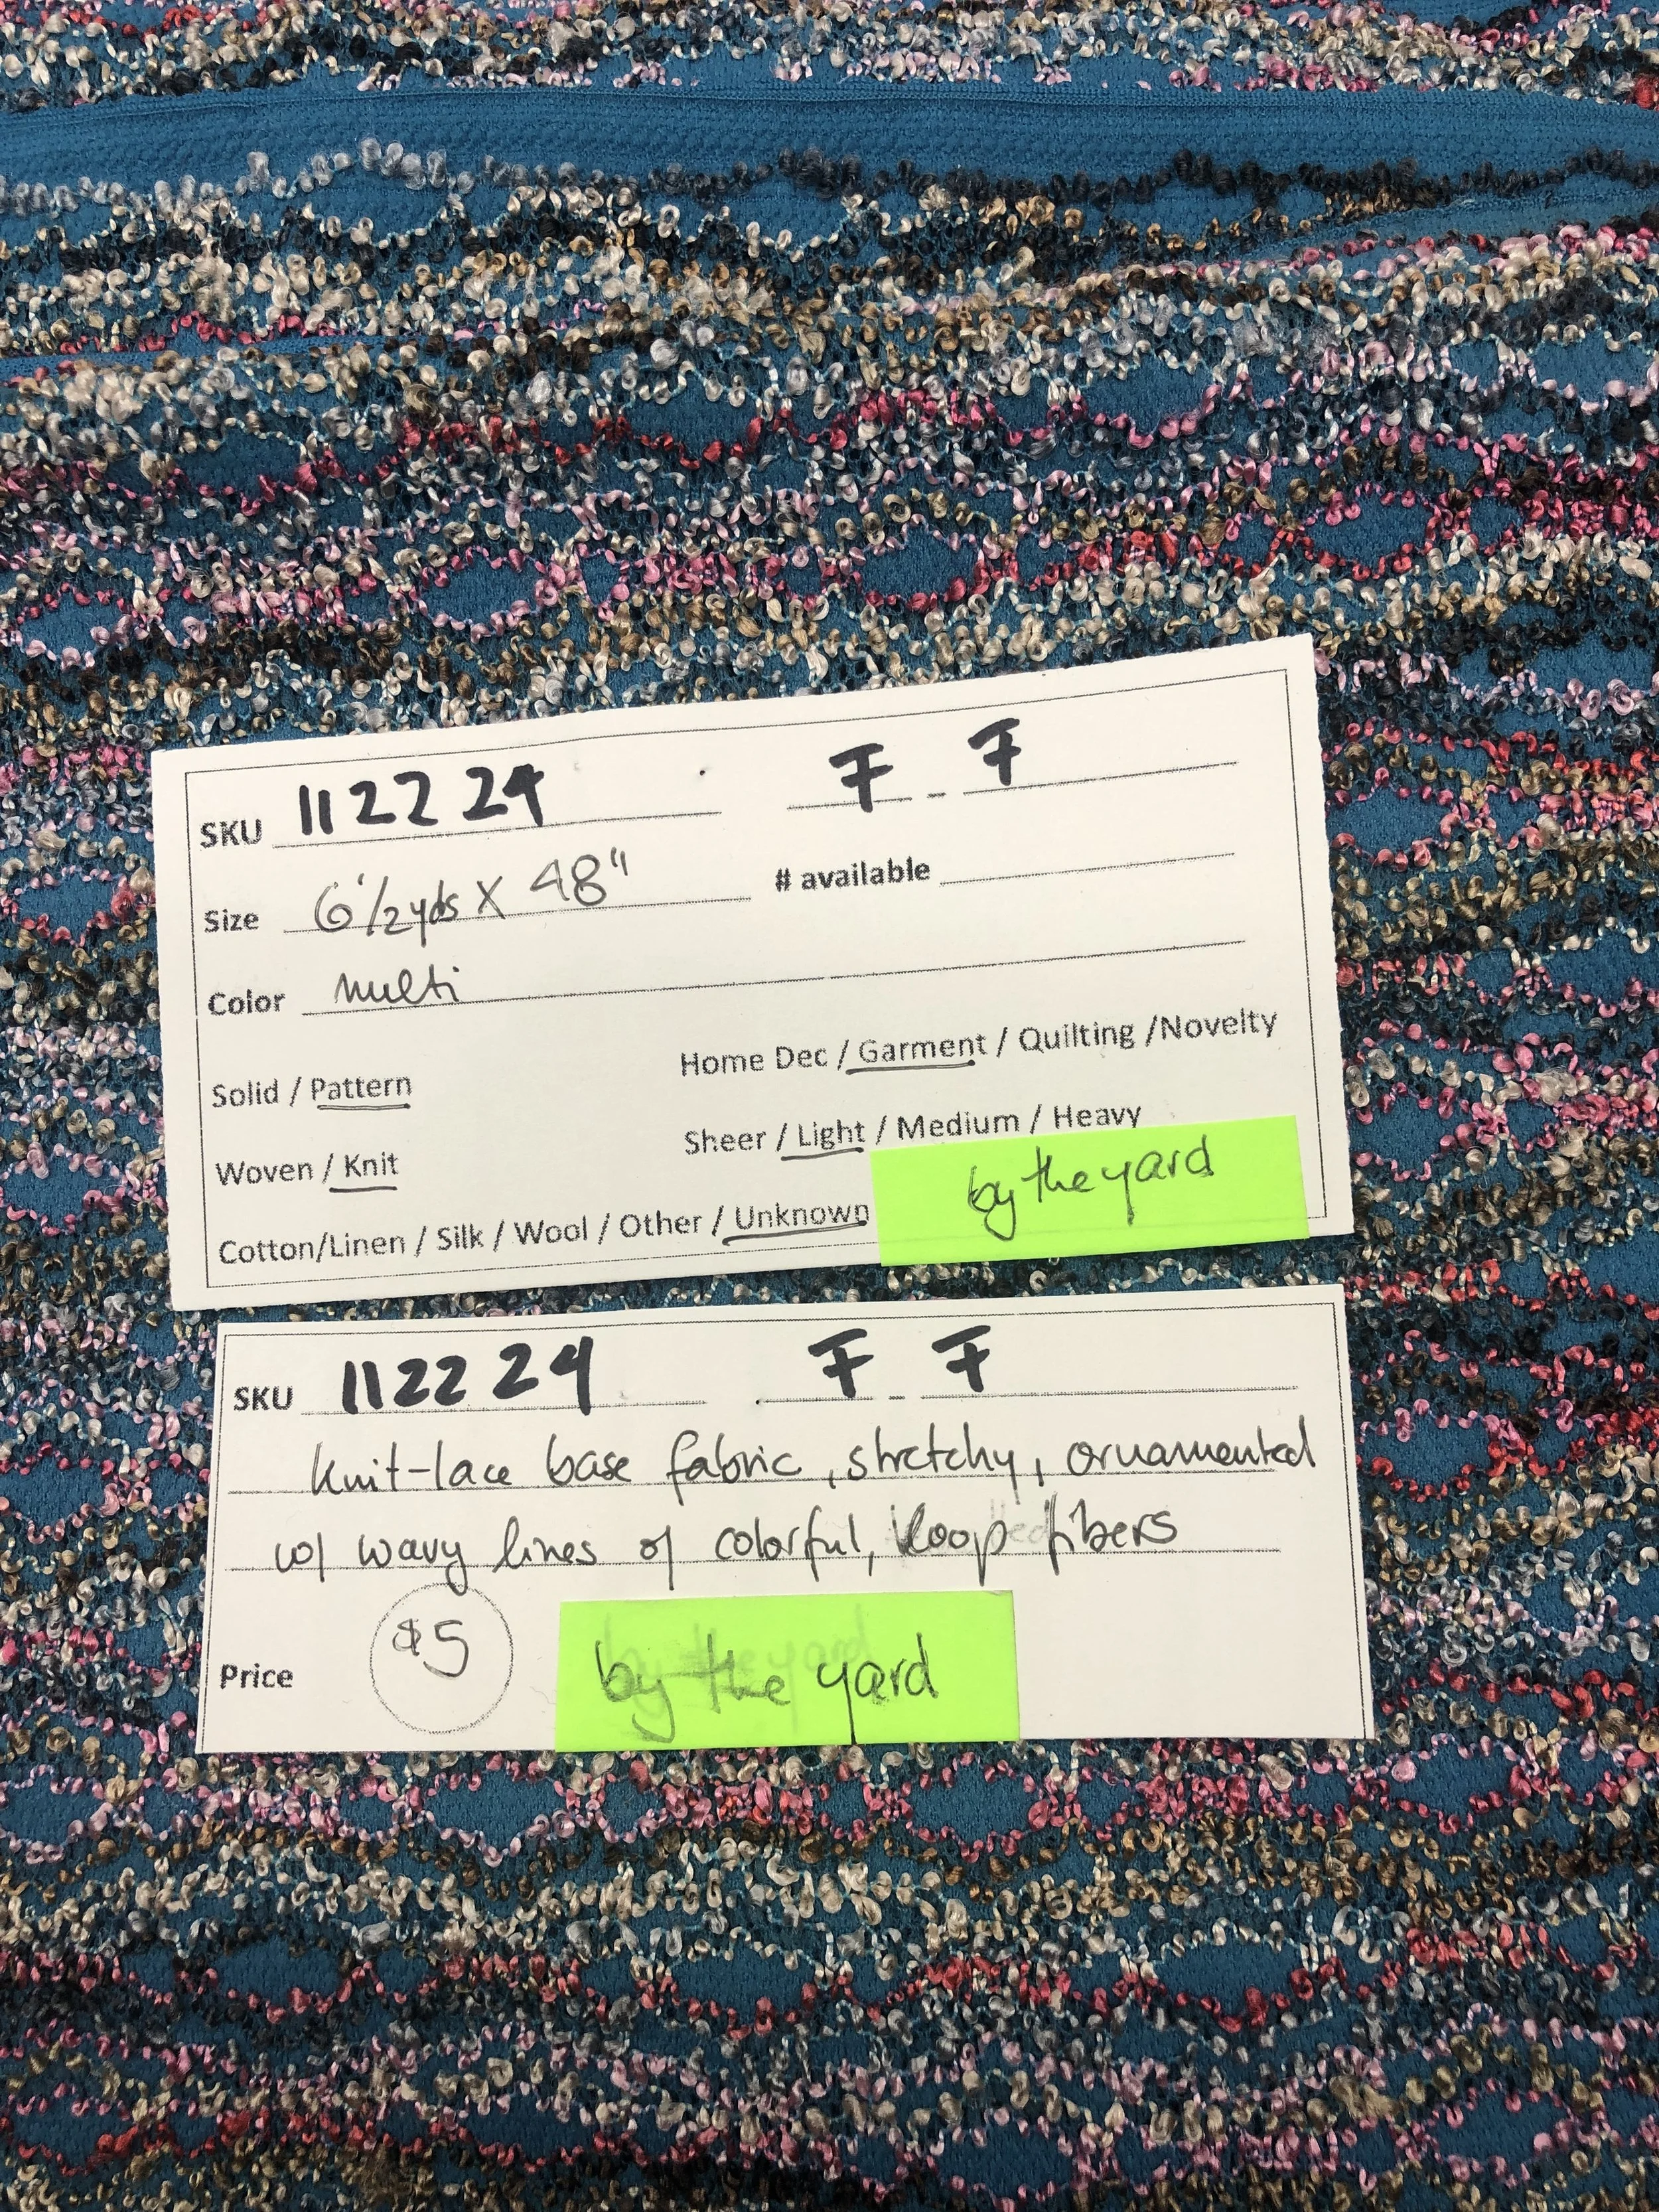 SKU 112224 F - F
Size 6 1/2 yds X 48" # available
Color multi
Solid / Pattern Home Dec / Garment / Quilting /Novelty
Woven / Knit Sheer / Light / Medium / Heavy
Cotton/Linen / Silk / Wool / Other / Unknown by the yard
SKU 112224 F - F
knit-lace base fabric, stretchy, ornamented
w/ wavy lines of colorful, loop fibers
Price $5 by the yard